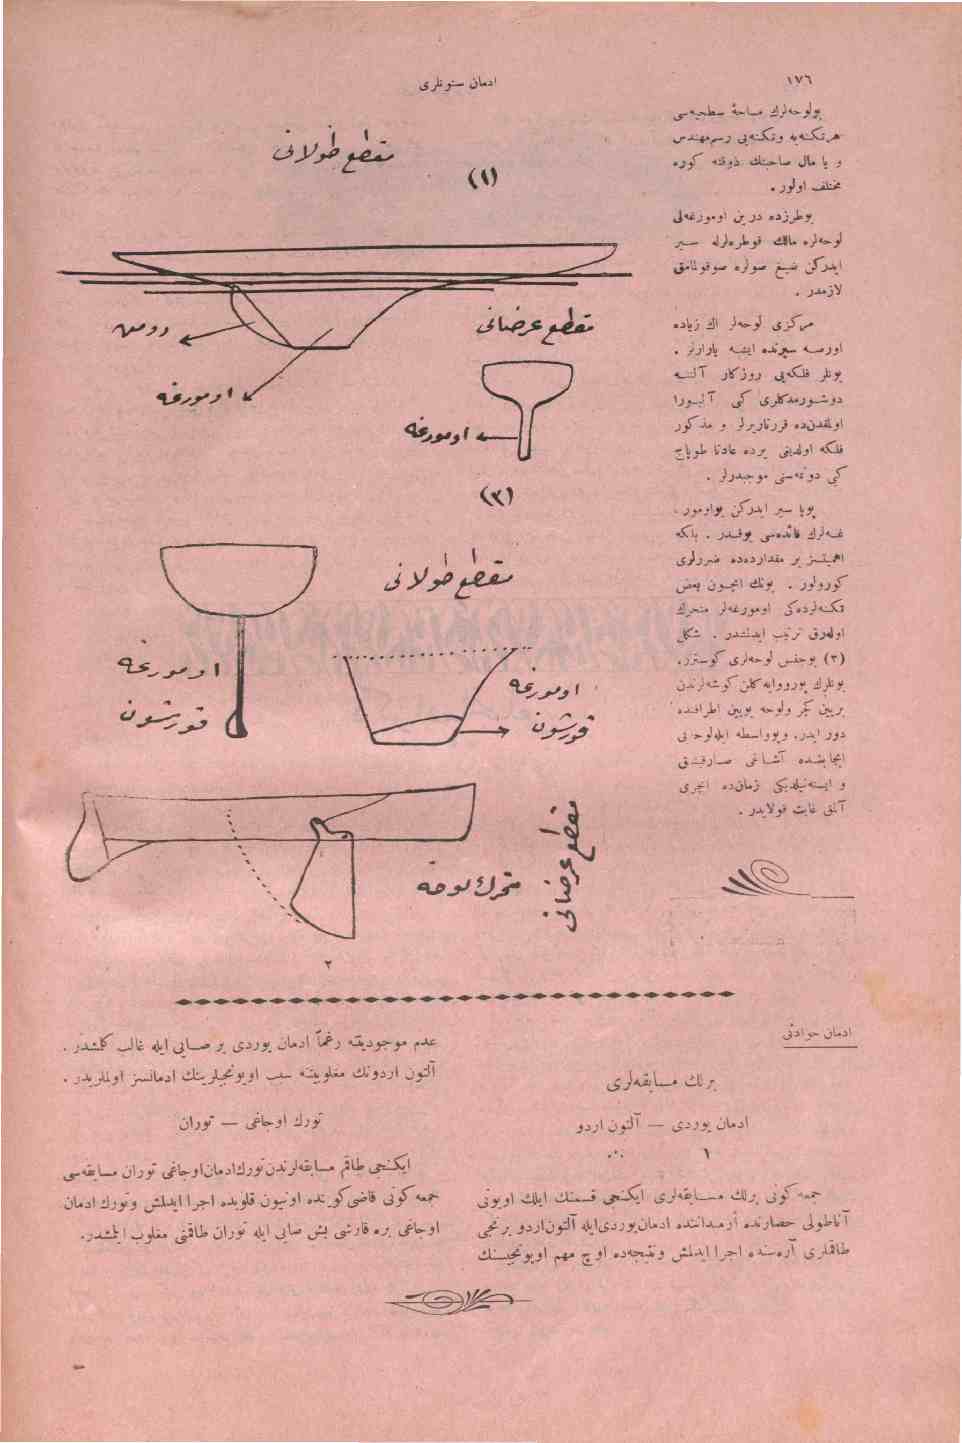 ١٧٦
ادمان ستونلری
بولوحه‌لرك مساحهٔ سطحیه‌سی
هرتكنه‌یه وتكنه‌یی رسم مهندس
و یا مال صاحبنك ذوقنه كوره
مختلف اولور .
بوطرزده درین اوموررغه‌لی
لوحه‌لره مالك قوطره‌لرله سیر
ایدركن صیغ صولره صوقولمامق
لازمدر .
مركزی لوحه‌لر اك زیاده
اورصه سیرنده ایشه یارارلر .
بونلر فلكه‌یی روزكار آلتنه
دوشورمدكلری كبی آلبورا
اولمقدن‌ده قورتاریرلر و مذكور
فلكه اولدیغی یرده عادتا طوپاج
كبی دونمه‌سنی موجبدرلر .
پوپا سیر ایدركن بواومور .
غه‌لرك فائده‌سی یوقدر . بلكه
اهمیتسز بر مقدارده‌ده ضررلری
كورولور . بونك ایچون بعض
تكنه‌لرده‌كی اومورغه‌لر متحرك
اوله‌رق ترتیب ایدلمشدر . شكل
(٣) بوجنس لوحه‌لری كوسترر.
بونلرك پوررووایه كلن كوشه‌لرندن
برپین كچر ولوحه بوپین اطرافنده
دور ایدر. وبوواسطه ایله‌لوحه‌یی
ایجابنده آشاغی صارقیتمق
و ایسته‌نیلدیكی زمان‌ده ایچری
آلمق غایت قولایدر .
مقطع طولانی
(١)
رومن
اومورغه
مقطع عرضانی
اومورغه
(٣)
مقطع طولانی
اومورغه
قورشون
اومورغه
قورشون
متحرك لوحه
مقطع عرضانی
٢
ادمان حوادثی
برلك مسابقه‌لری
ادمان یوردی — آلتون اردو
١ ٠
جمعه كونی برلك مسابقه‌لری ایكنجی قسمنك ایلك اویونی
آناطولی حصارنده ارمیداننده ادمان‌یوردی‌ایله آلتون‌اردو برنجی
طاقملری آره‌سنده اجرا ایدلمش ونتیجه‌ده اوچ مهم اویونجیسنك
عدم موجودیتنه رغماً ادمان یوردی بر صایی ایله غالب كلمشدر .
آلتون اردونك مغلوبیتنه سبب اویونجیلرینك ادمانسز اولملریدر .
تورك اوجاغی — توران
ایكنجی طاقم مسابقه‌لرندن تورك‌ادمان‌اوجاغی توران مسابقه‌سی
جمعه كونی قاضی‌كوینده اونیون قلوبده اجرا ایدلمش وتورك ادمان
اوجاغی بره قارشی بش صایی ایله توران طاقمنی مغلوب ایتمشدر.